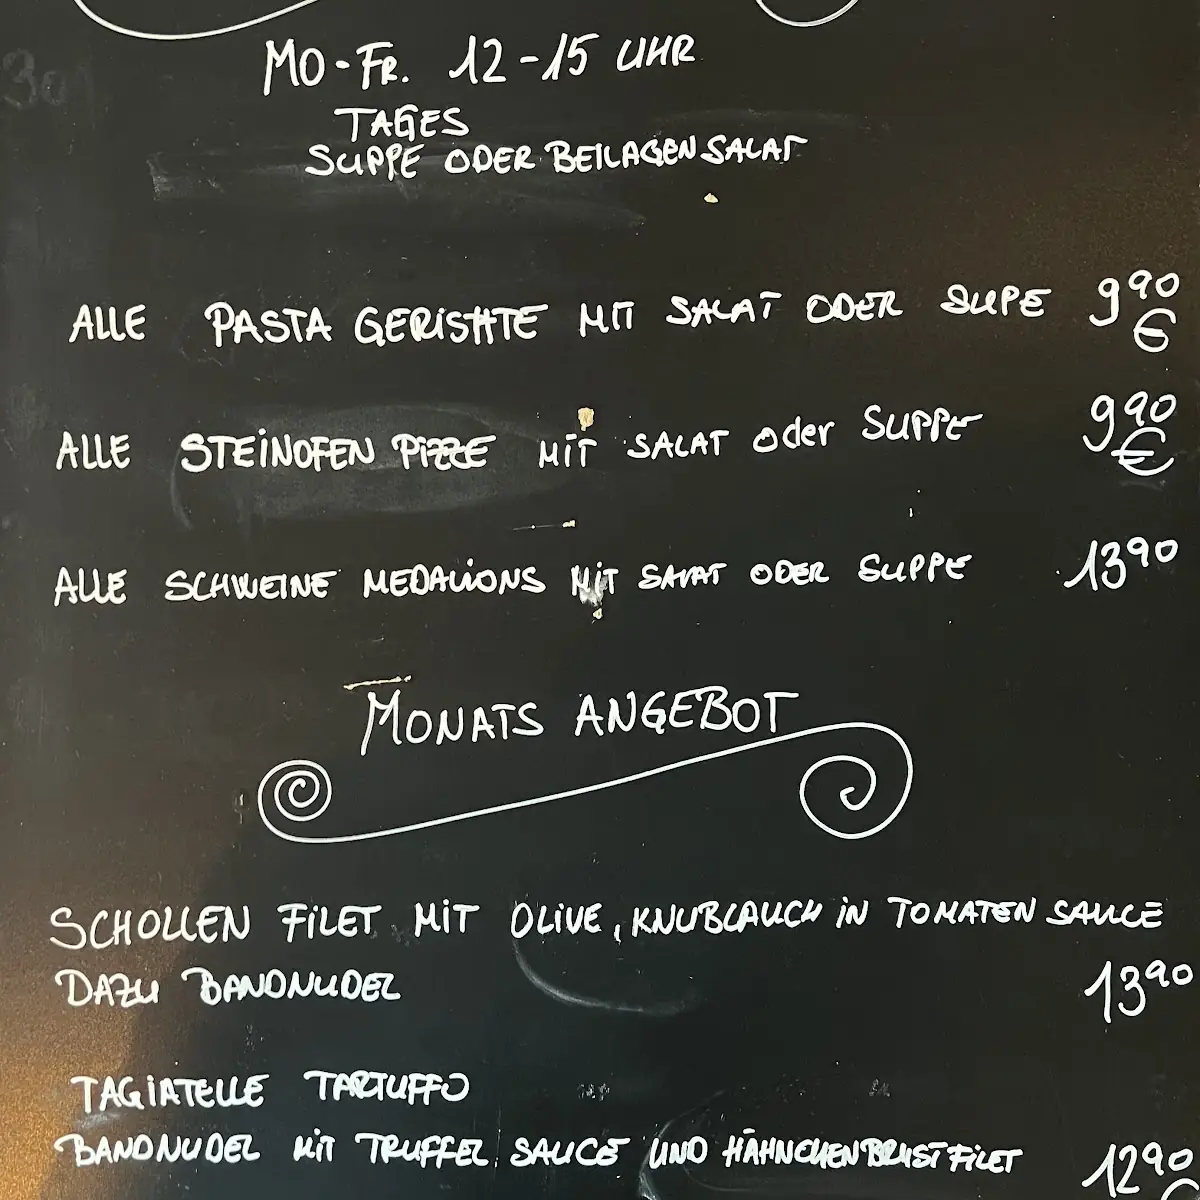 MO-FR. 12-15 UHR
TAGES
SUPPE ODER BEILAGENSALAT
ALLE PASTA GERISHTE MIT SALAT ODER SUPE 9 90 €
ALLE STEINOFEN PIZZE MIT SALAT ODER SUPPE 9 90 €
ALLE SCHWEINE MEDALIONS MIT SALAT ODER SUPPE 13 90
MONATS ANGEBOT
SCHOLLEN FILET MIT OLIVE, KNUBLAUCH IN TOMATEN SAUCE
DAZU BANDNUDEL 13 90
TAGIATELLE TARTUFFO
BANDNUDEL MIT TRUFFEL SAUCE UND HÄHNCHENBRUSTFILET 12 90